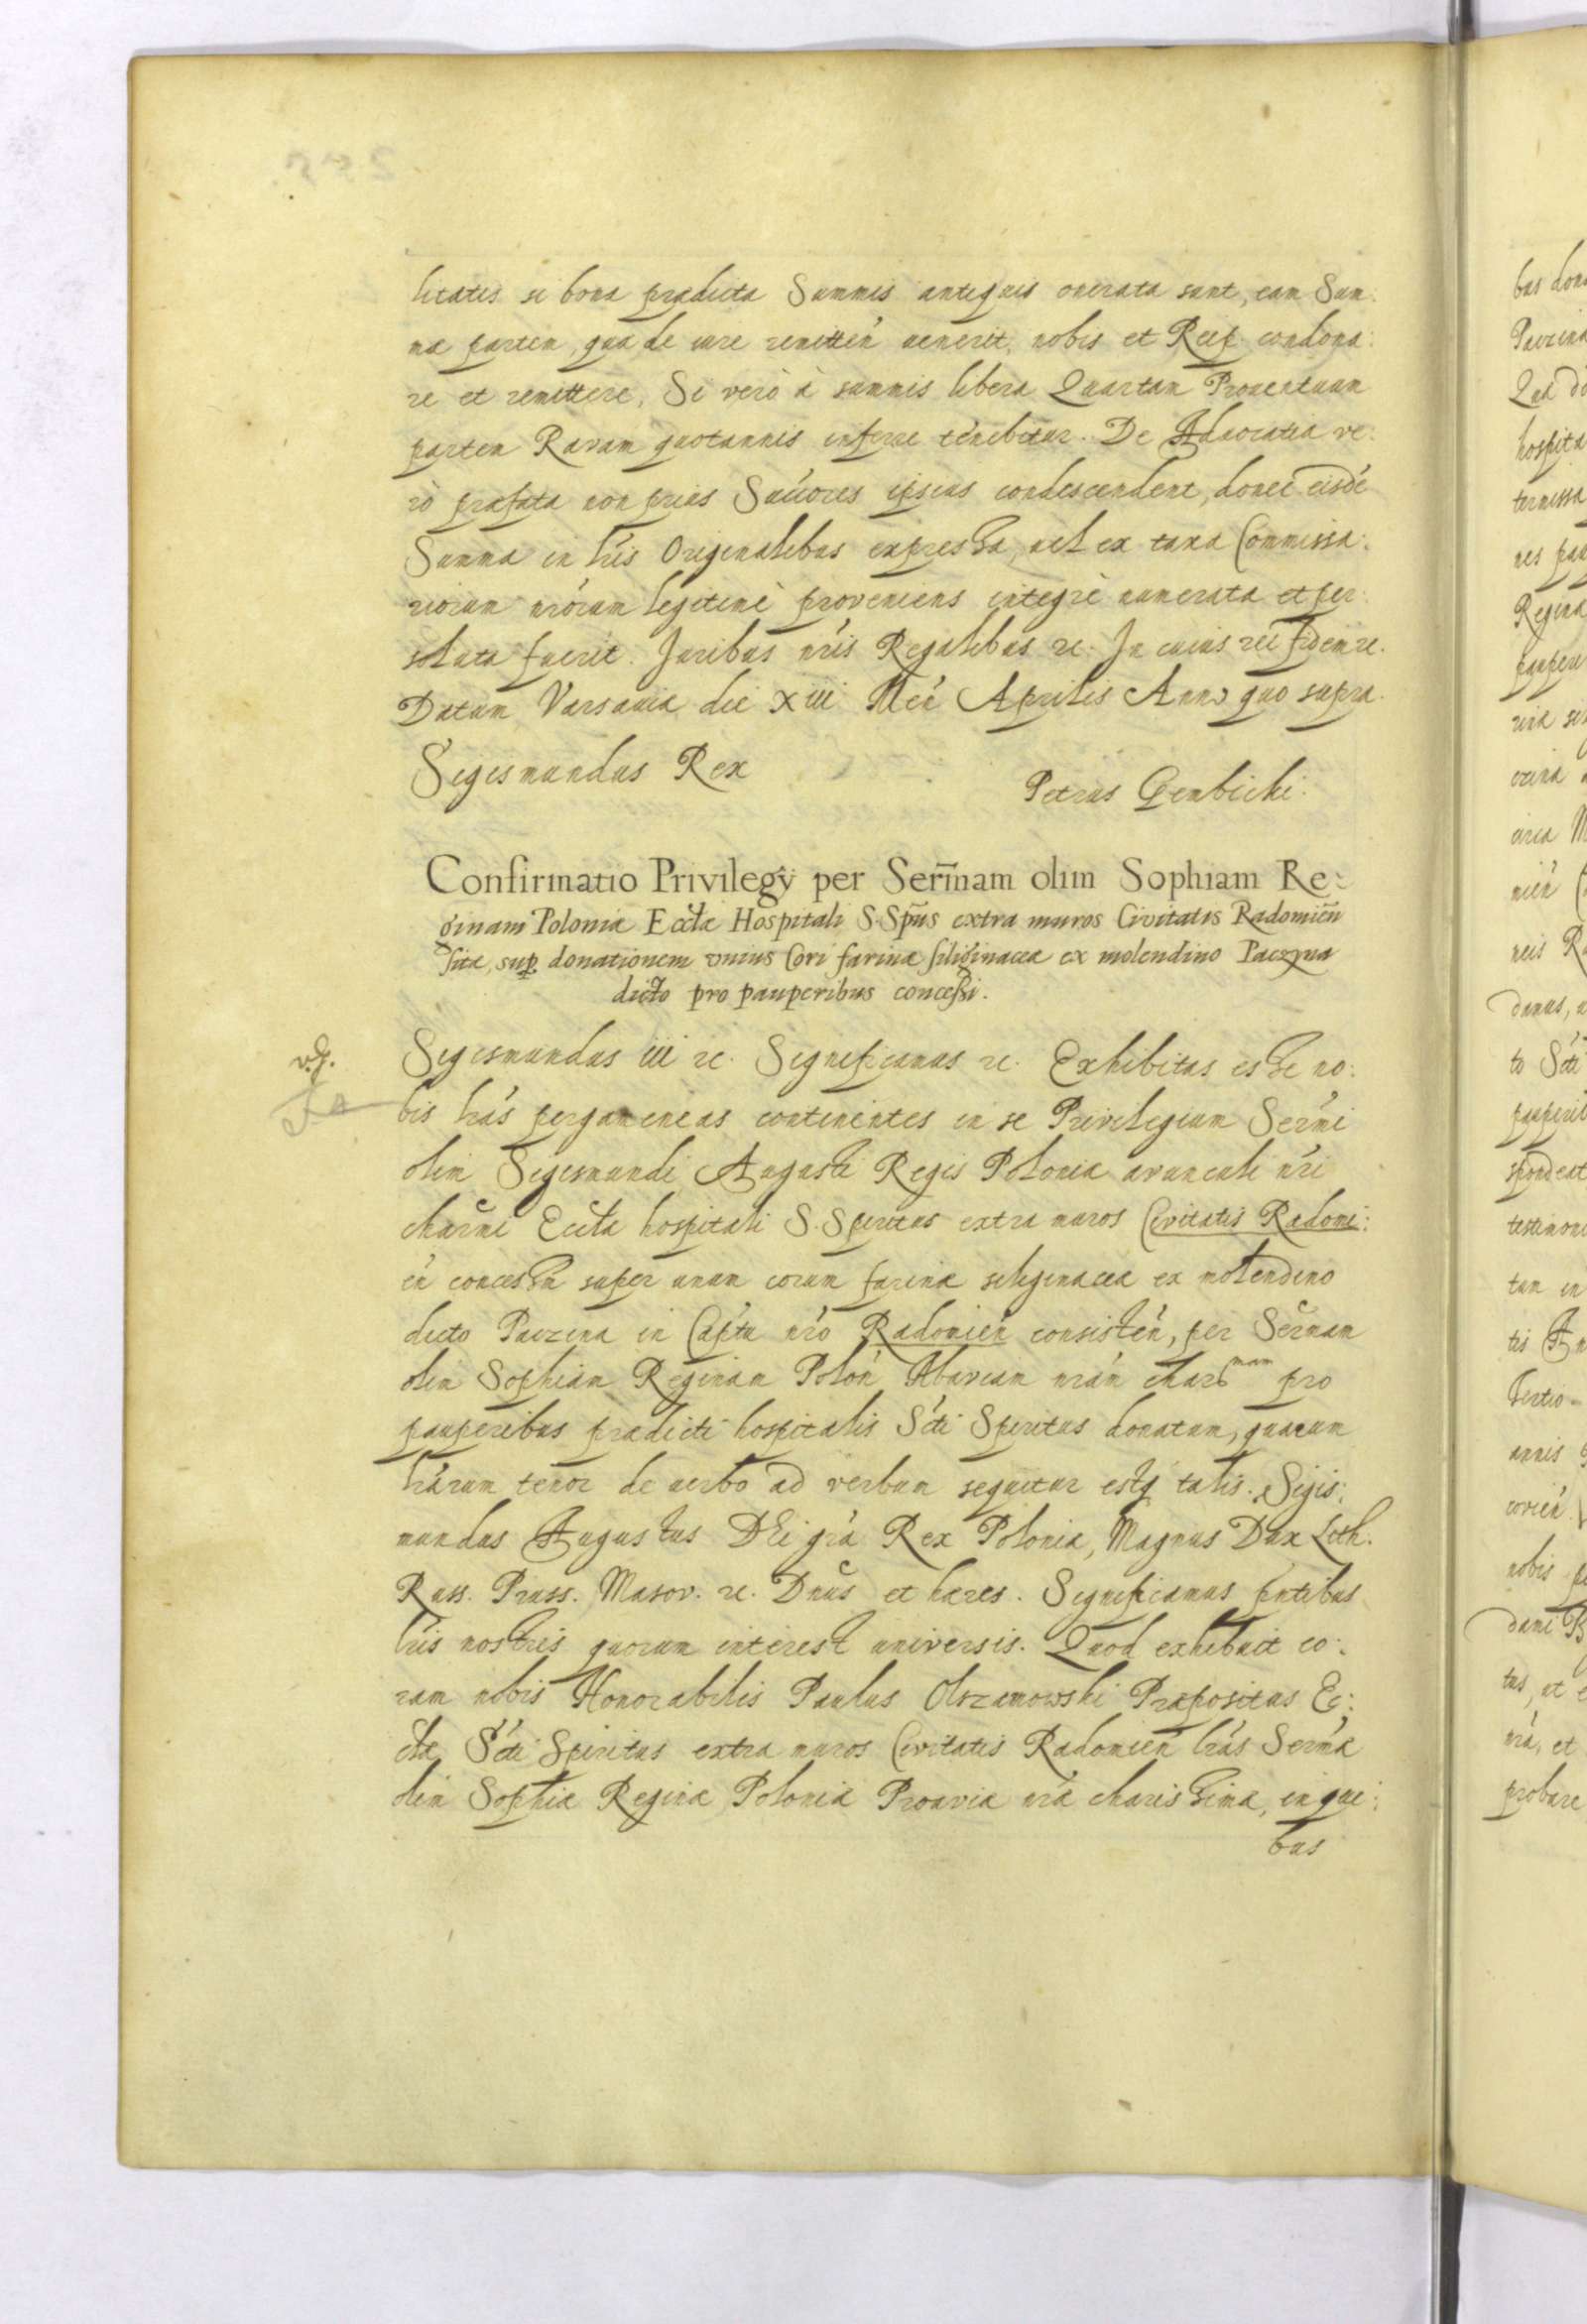 litatis si bona prædicta Summis antiquis onerata sunt, eam Sum:
mæ partem, quæ de iure remitteń uenerit, nobis et Reip. condona:
re et remittere, Si verò à summis libera Quartam Prouentuum
partem Ravam quotannis inferre tenebitur. De Aduocatia ve:
rò præfata non prius Succores ipsius condescendent, donec eisdé
Summa in lris Originalibus expressa, uel ex taxa Commissa:
riorum nrórum legitimè proveniens integrè numerata et per:
soluta fuerit. Juribus nris Regalibus rc. In cuius rei fidem rc.
Datum Varsauiæ die xiii Mén Aprilis Anno quo supra.
Sigismundus Rex
Petrus Gembicki.
Confirmatio Privilegÿ per Serm̃am olim Sophiam Re:
ginam Poloniæ Ecclæ Hospitali S. Spũs extra muros Civitatis Radomień
sitæ, sup donationem vnius Cori farinæ siliginaceæ ex molendino Paczyna
dicto pro pauperibus concessi.
Sigismundus iii rc. Significamus rc. Exhibitas esse no:
bis lrás pergameneas continentes in se Privilegium Sermi
olim Sigismundi Augusti Regis Poloniæ avunculi nri
charmi Ecclæ hospitali S. Spiritus extra muros Civitatis Radomi:
eń concessum super unum corum farinæ siliginaceæ ex molendino
dicto Paczyna in Captu nro Radomień consisteń, per Sermam
olim Sophiam Reginam Poloń Abaviam nrám charismam pro
pauperibus prædicti hospitalis Scti Spiritus donatum, quarum
lrárum tenor de uerbo ad verbum sequitur estq talis. Sigis:
mundus Augustus Dei grá Rex Poloniæ, Magnus Dux Lith.
Russ. Pruss. Masov. rc. Dnus et hæres. Significamus pntibus
lris nostris quorum interest universis. Quod exhibuit co:
ram nobis Honorabilis Paulus Olszamowski Præpositus Ec:
clæ Scti Spiritus extra muros Civitatis Radomień lrás Sermæ
olim Sophiæ Reginæ Poloniæ Proaviæ nræ charissimæ, in qui:
bus